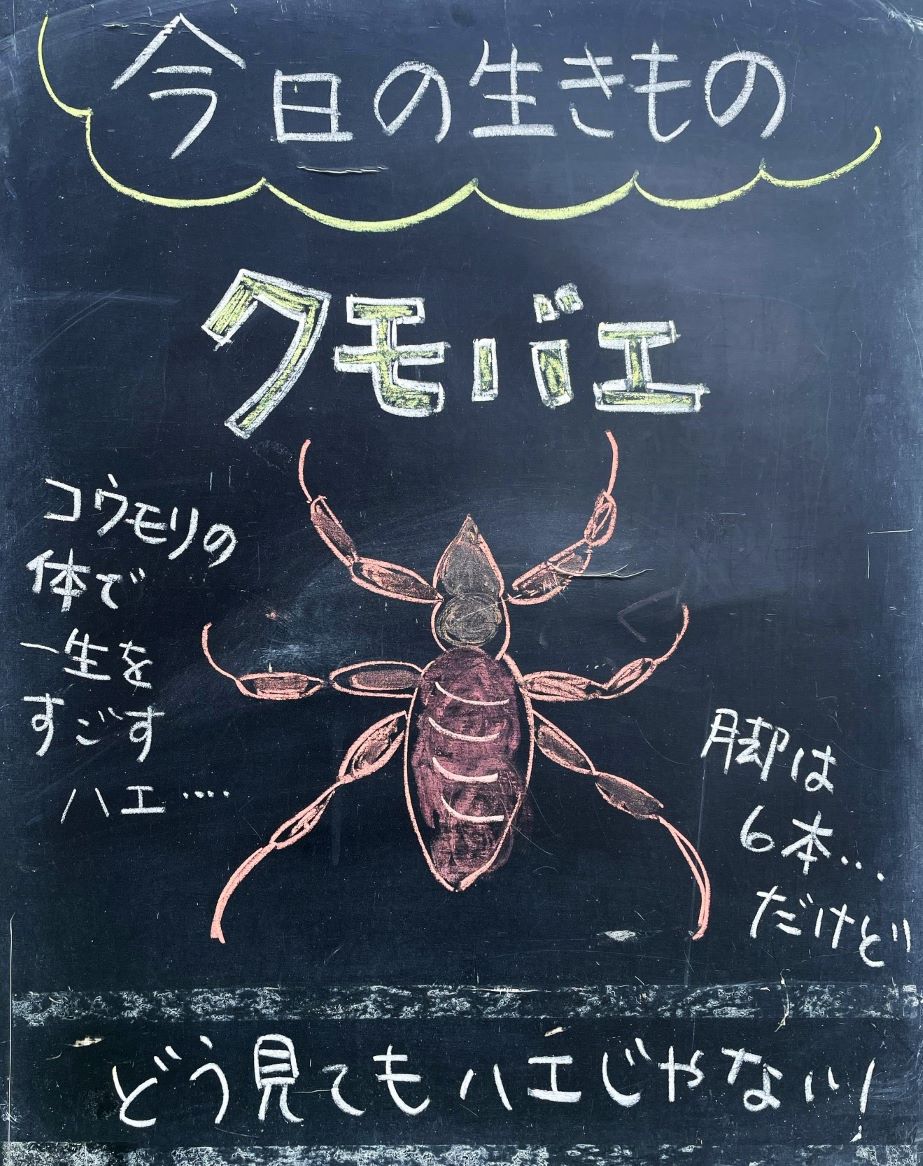 今日の生きもの
クモバエ
コウモリの
体で
一生を
すごす
ハエ‥‥
脚は
6本‥.
だけど
どう見てもハエじゃない!